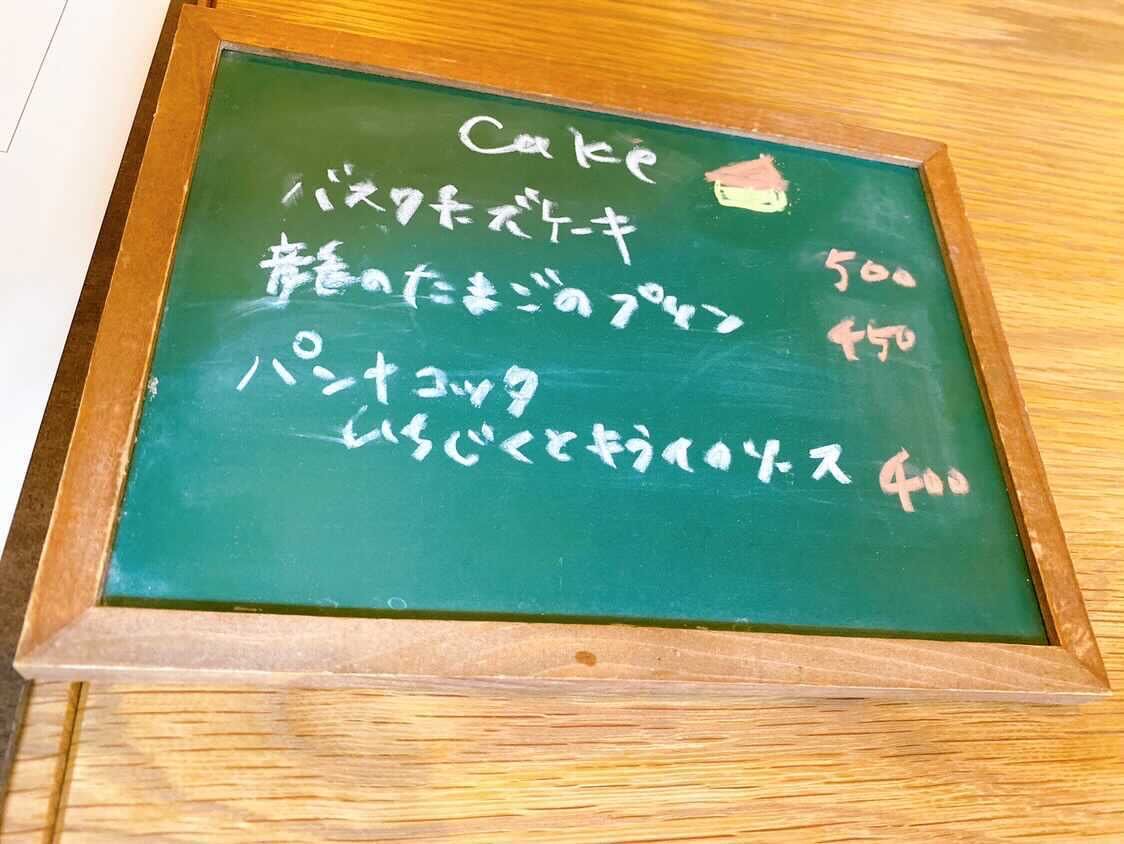 Cake
バスクチーズケーキ 500
龍のたまごのプリン 450
パンナコッタ
いちじくとキウイのソース 400